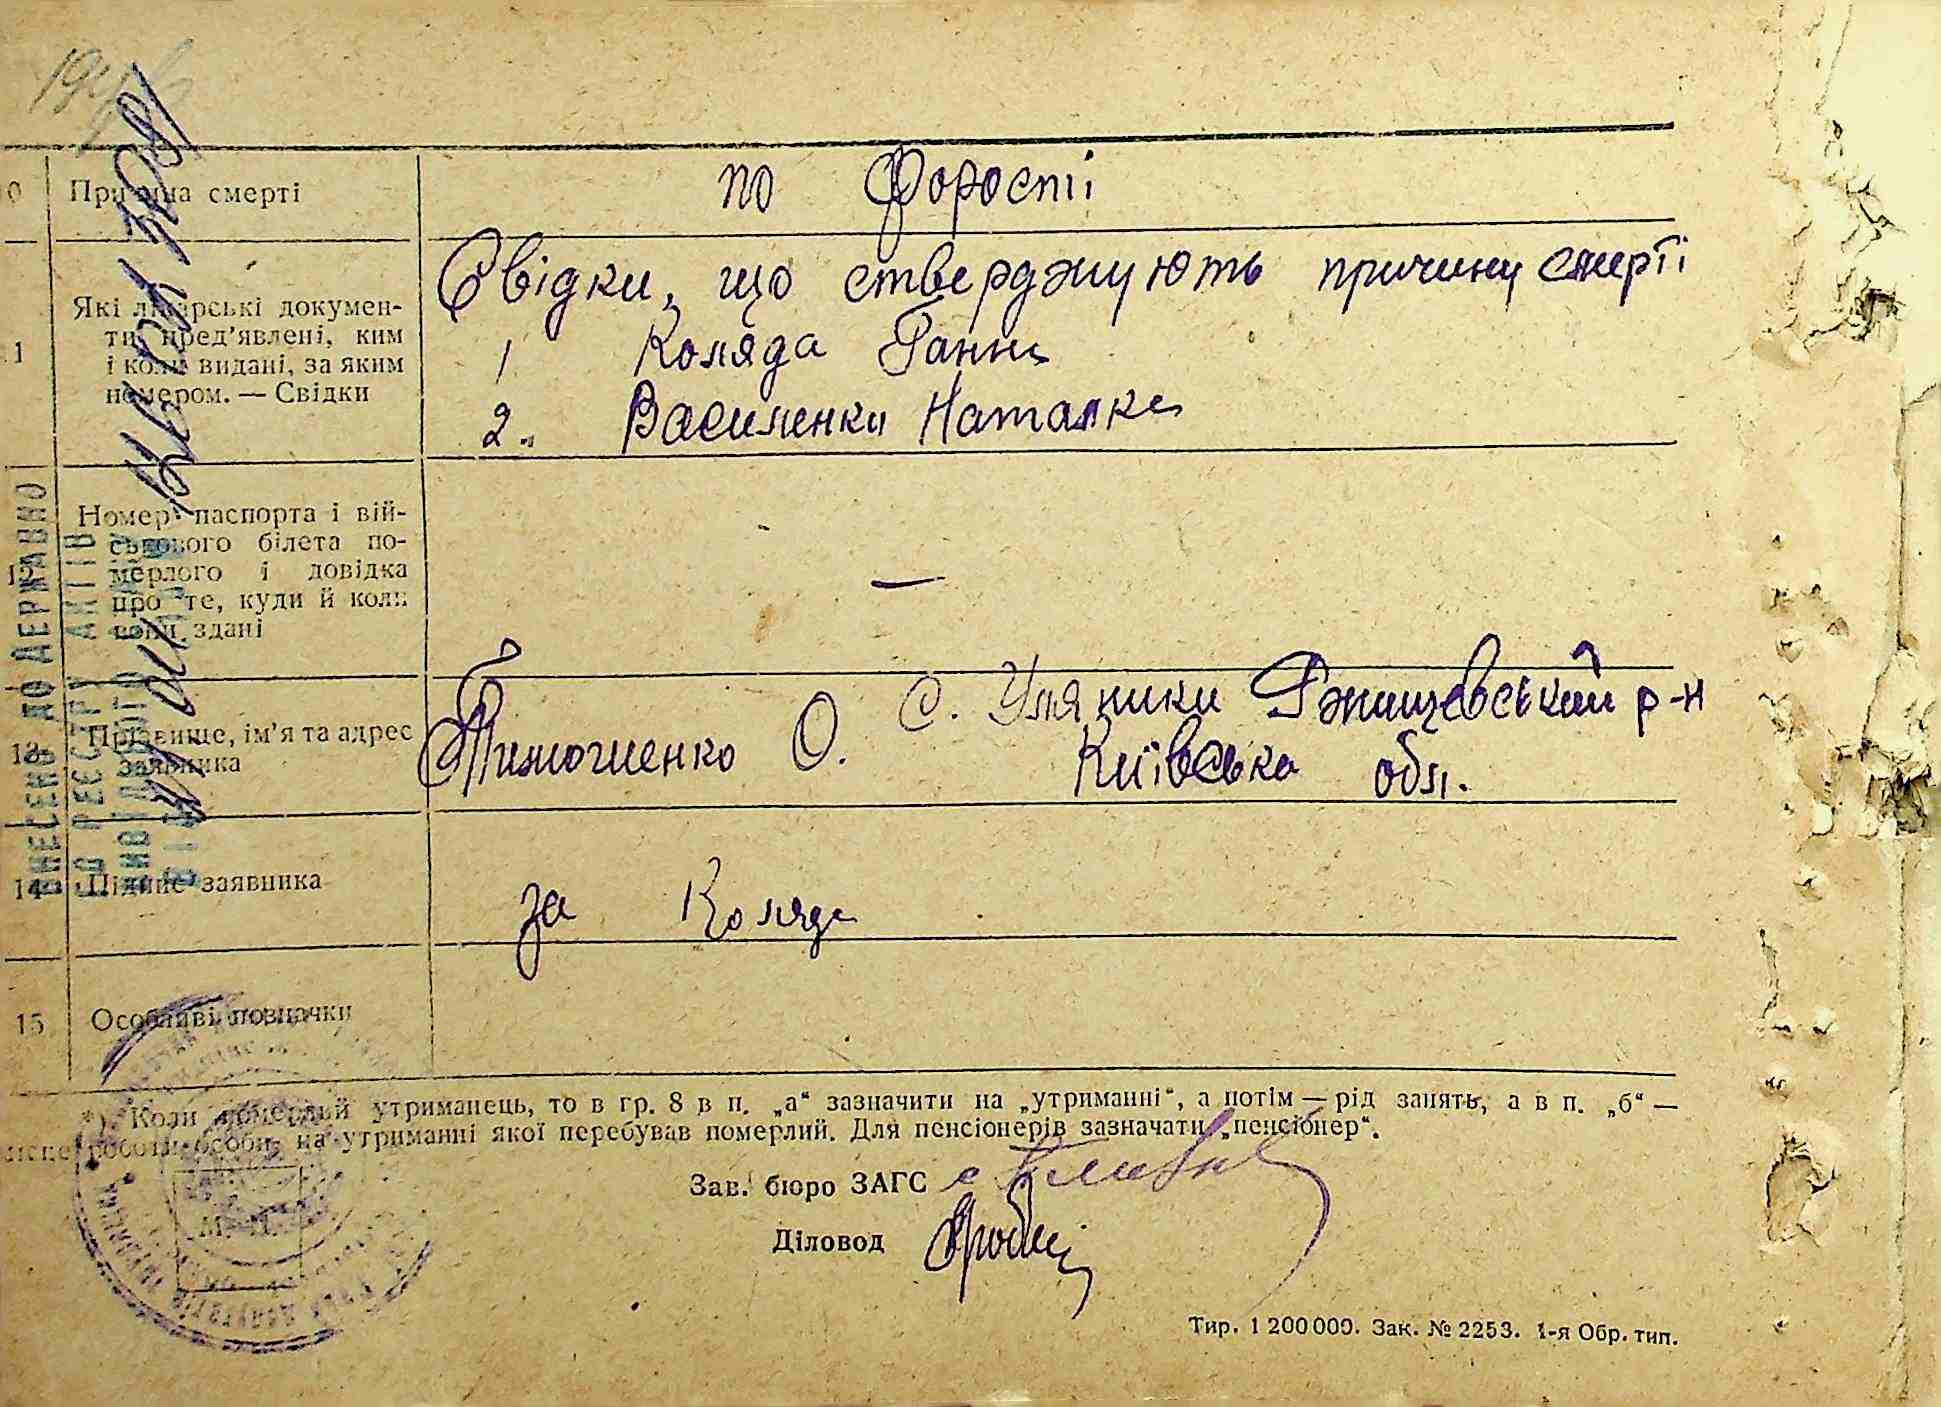 194
Причина смерті
по Форості
Які лікарські докумен-
ти пред'явлені, ким
і коли видані, за яким
номером. — Свідки
Свідки, що стверджують причину смерті
1 Коляда Ганна
2. Василенко Наталка
12
Номер паспорта і вій-
ськового білета по-
мерлого і довідка
про те, куди й коли
вони здані
—
13
Прізвище, ім'я та адрес
заявника
Тимошенко О. С. Уляники Ржищевський р-н
Київська обл.
14
Підпис заявника
за Коляда
15
Особливі позначки
*) Коли померлий утриманець, то в гр. 8 в п. „а“ зазначити на „утриманні“, а потім — рід занять, а в п. „б“ —
місце роботи особи, на утриманні якої перебував померлий. Для пенсіонерів зазначати „пенсіонер“.
Зав. бюро ЗАГС
Діловод
М. П.
Тир. 1 200 000. Зак. № 2253. 1-я Обр. тип.
ВНЕСЕНО ДО ДЕРЖАВНО
ГО РЕЄСТРУ АКТІВ